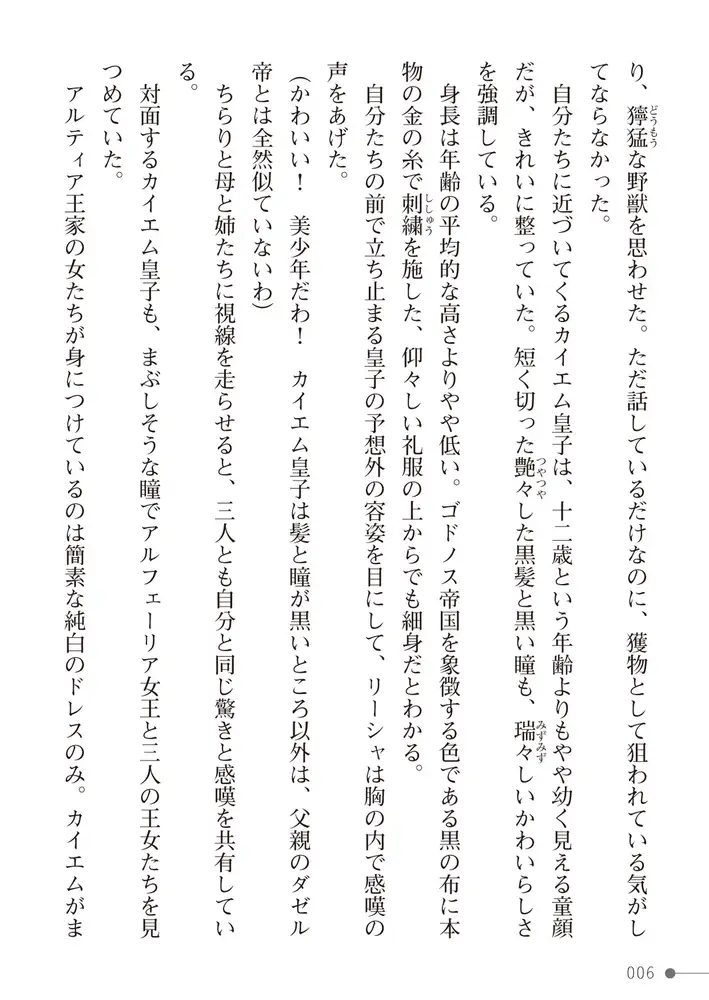 り、獰猛な野獣を思わせた。ただ話しているだけなのに、獲物として狙われている気がし
どうもう
てならなかった。
自分たちに近づいてくるカイエム皇子は、十二歳という年齢よりもやや幼く見える童顔
だが、きれいに整っていた。短く切った艶々した黒髪と黒い瞳も、瑞々しいかわいらしさ
つやつや
みずみず
を強調している。
身長は年齢の平均的な高さよりやや低い。ゴドノス帝国を象徴する色である黒の布に本
物の金の糸で刺繍を施した、仰々しい礼服の上からでも細身だとわかる。
ししゅう
自分たちの前で立ち止まる皇子の予想外の容姿を目にして、リーシャは胸の内で感嘆の
声をあげた。
(かわいい! 美少年だわ! カイエム皇子は髪と瞳が黒いところ以外は、父親のダゼル
帝とは全然似ていないわ)
ちらりと母と姉たちに視線を走らせると、三人とも自分と同じ驚きと感嘆を共有してい
る。
対面するカイエム皇子も、まぶしそうな瞳でアルフェーリア女王と三人の王女たちを見
つめていた。
アルティア王家の女たちが身につけているのは簡素な純白のドレスのみ。カイエムがま
006